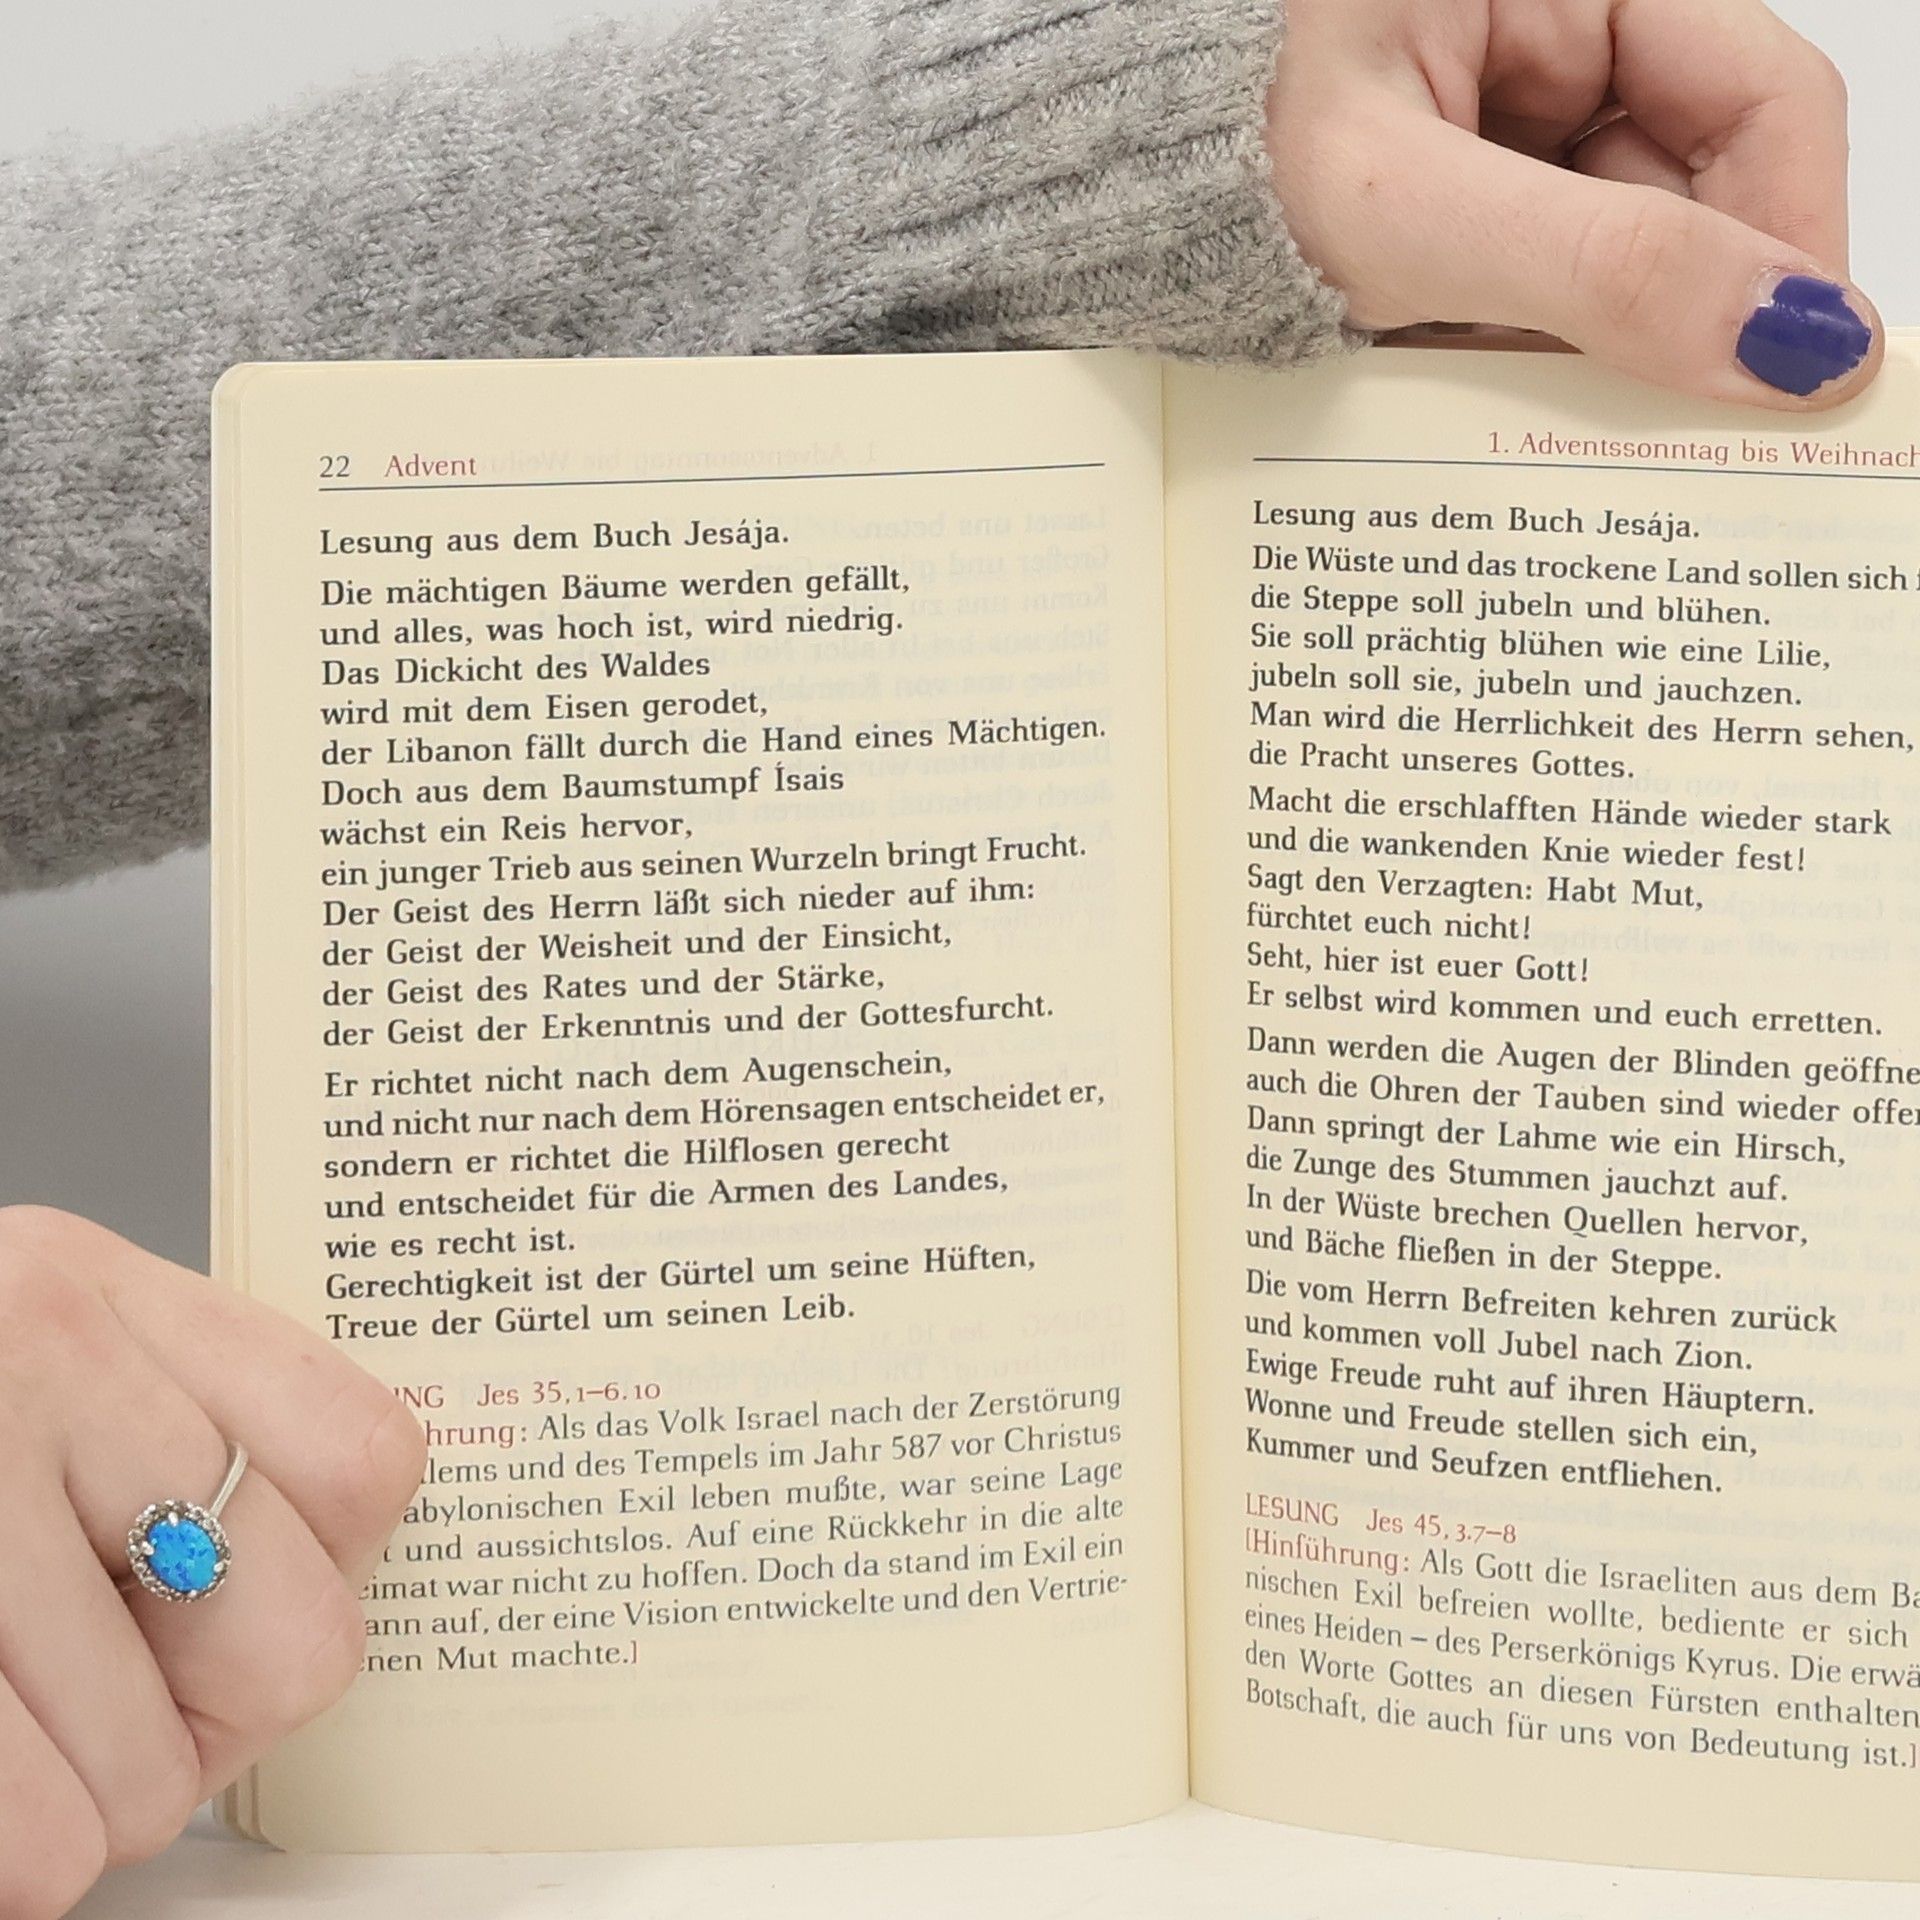 22 Advent
Lesung aus dem Buch Jesája.
Die mächtigen Bäume werden gefällt,
und alles, was hoch ist, wird niedrig.
Das Dickicht des Waldes
wird mit dem Eisen gerodet,
der Libanon fällt durch die Hand eines Mächtigen.
Doch aus dem Baumstumpf Ísais
wächst ein Reis hervor,
ein junger Trieb aus seinen Wurzeln bringt Frucht.
Der Geist des Herrn läßt sich nieder auf ihm:
der Geist der Weisheit und der Einsicht,
der Geist des Rates und der Stärke,
der Geist der Erkenntnis und der Gottesfurcht.
Er richtet nicht nach dem Augenschein,
und nicht nur nach dem Hörensagen entscheidet er,
sondern er richtet die Hilflosen gerecht
und entscheidet für die Armen des Landes,
wie es recht ist.
Gerechtigkeit ist der Gürtel um seine Hüften,
Treue der Gürtel um seinen Leib.
Jes 35, 1–6. 10
Als das Volk Israel nach der Zerstörung
und des Tempels im Jahr 587 vor Christus
Exil leben mußte, war seine Lage
und aussichtslos. Auf eine Rückkehr in die alte
war nicht zu hoffen. Doch da stand im Exil ein
auf, der eine Vision entwickelte und den Vertrie-
Mut machte.]
1. Adventssonntag bis
Lesung aus dem Buch Jesája.
Die Wüste und das trockene Land sollen sich
die Steppe soll jubeln und blühen.
Sie soll prächtig blühen wie eine Lilie,
jubeln soll sie, jubeln und jauchzen.
Man wird die Herrlichkeit des Herrn sehen,
die Pracht unseres Gottes.
Macht die erschlafften Hände wieder stark
und die wankenden Knie wieder fest!
Sagt den Verzagten: Habt Mut,
fürchtet euch nicht!
Seht, hier ist euer Gott!
Er selbst wird kommen und euch erretten.
Dann werden die Augen der Blinden
auch die Ohren der Tauben sind wieder
Dann springt der Lahme wie ein Hirsch,
die Zunge des Stummen jauchzt auf.
In der Wüste brechen Quellen hervor,
und Bäche fließen in der Steppe.
Die vom Herrn Befreiten kehren zurück
und kommen voll Jubel nach Zion.
Ewige Freude ruht auf ihren Häuptern.
Wonne und Freude stellen sich ein,
Kummer und Seufzen entfliehen.
LESUNG Jes 45, 3.7–8
[Hinführung: Als Gott die Israeliten aus dem
nischen Exil befreien wollte, bediente er sich
eines Heiden – des Perserkönigs Kyrus. Die
den Worte Gottes an diesen Fürsten enthalten
Botschaft, die auch für uns von Bedeutung ist.]